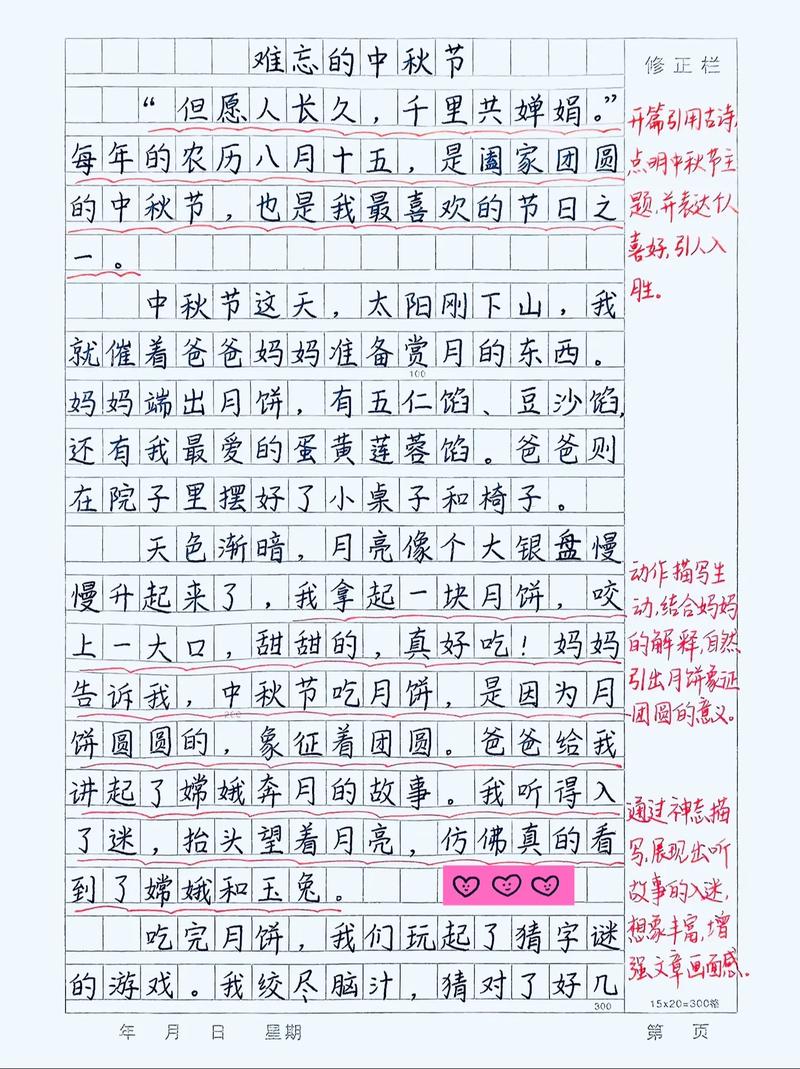 难忘的中秋节
修正栏
“但愿人长久，千里共婵娟。”
每年的农历八月十五，是阖家团圆
的中秋节，也是我最喜欢的节日之
一。
中秋节这天，太阳刚下山，我
就催着爸爸妈妈准备赏月的东西。
100
妈妈端出月饼，有五仁馅、豆沙馅，
还有我最爱的蛋黄莲蓉馅。爸爸则
在院子里摆好了小桌子和椅子。
天色渐暗，月亮像个大银盘慢
慢升起来了，我拿起一块月饼，咬
上一大口，甜甜的，真好吃！妈妈
告诉我，中秋节吃月饼，是因为月
200
饼圆圆的，象征着团圆。爸爸给我
讲起了嫦娥奔月的故事。我听得入
了迷，抬头望着月亮，仿佛真的看
到了嫦娥和玉兔。
吃完月饼，我们玩起了猜字谜
的游戏。我绞尽脑汁，猜对了好几
300
开篇引用古诗，
点明中秋节主
题，并表达个人
喜好，引人入
胜。
动作描写生
动，结合妈妈
的解释，自然
引出月饼象征
团圆的意义。
通过神态描
写，展现出听
故事的入迷，
想象丰富，增
强文章画面感。
15x20=300格
年 月 日 星期
第 页